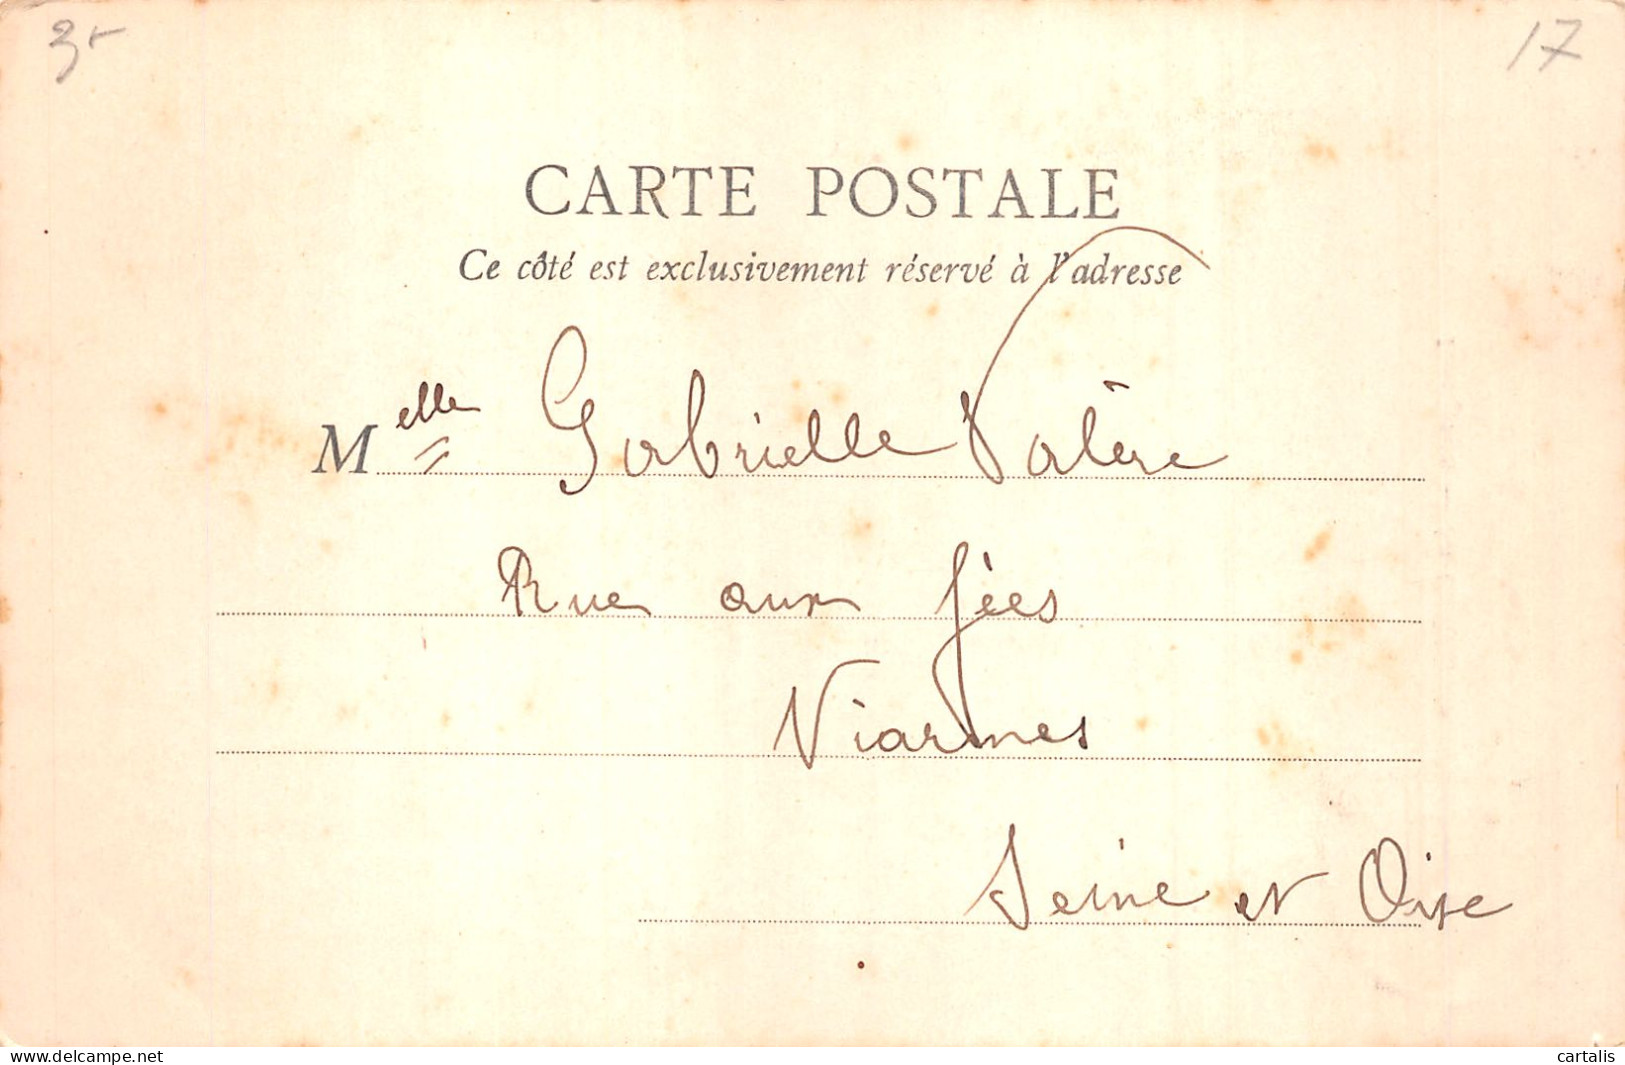 3-
17
CARTE POSTALE
Ce côté est exclusivement réservé à l'adresse
Melle Gabrielle Valère
Rue aux fées
Viarmes
Seine et Oise
www.delcampe.net
cartalis